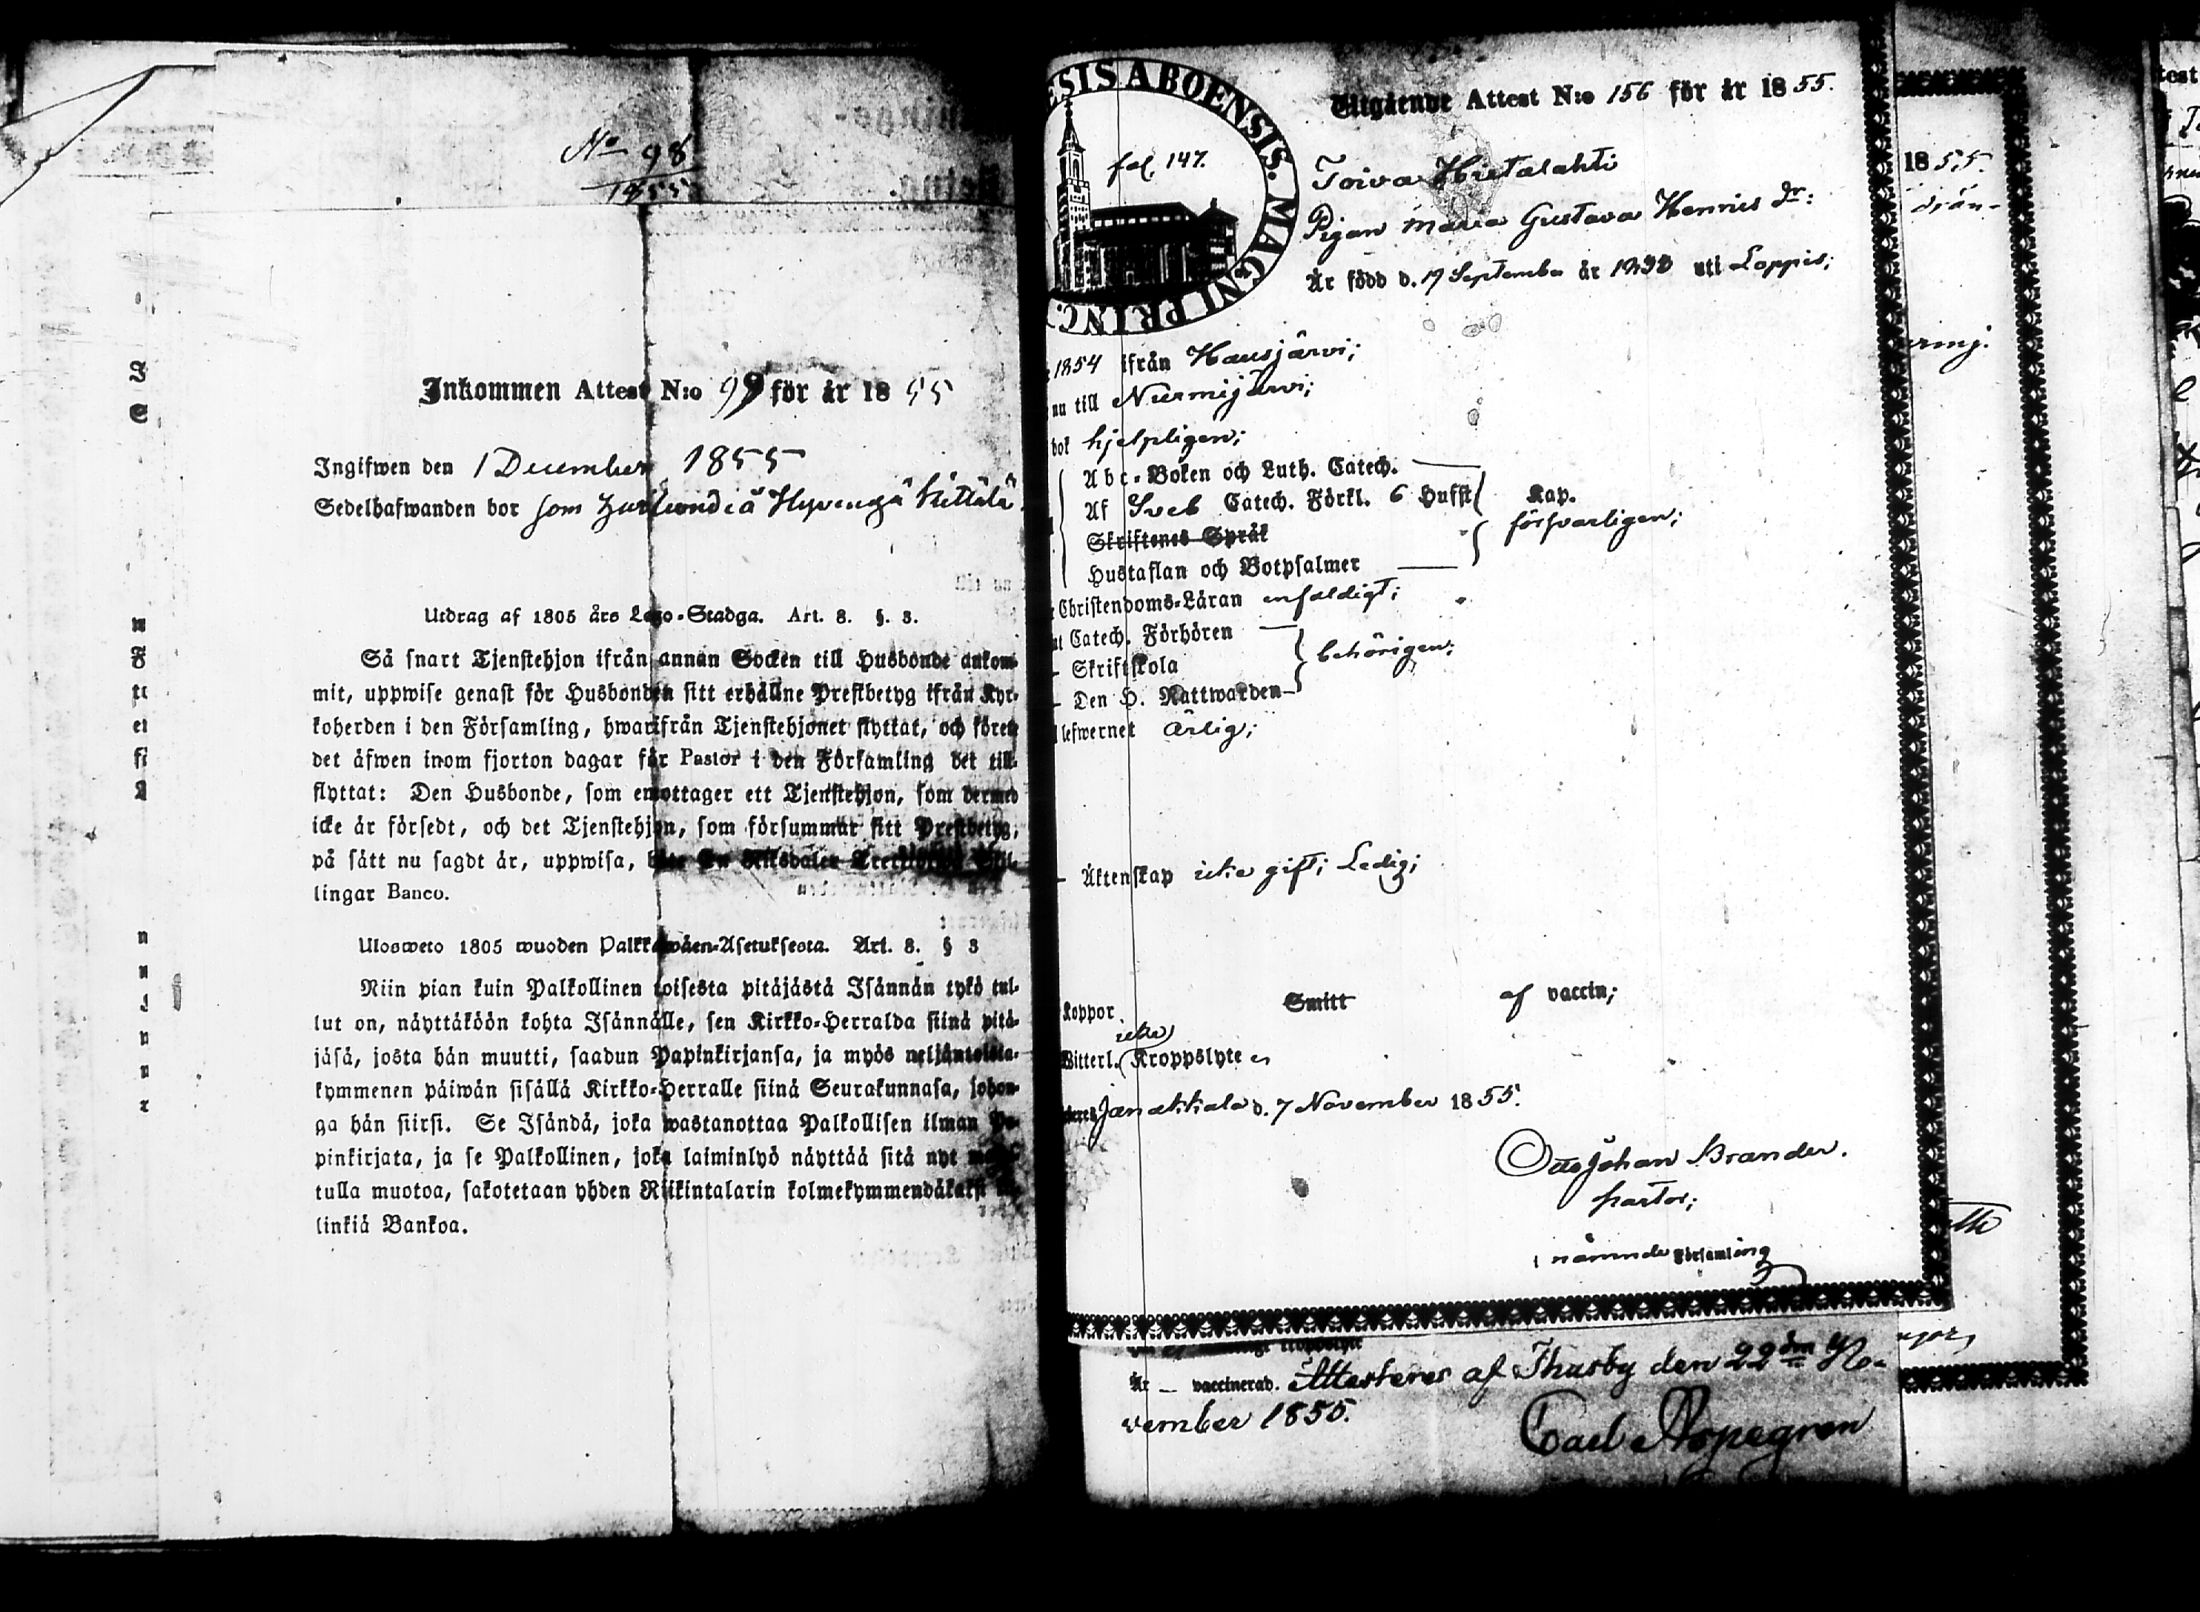 No 98
1855
Inkommen Attest N:o 99 för år 1855
Ingifwen den 1 December 1855
Sedelhafwanden bor som
Utdrag af 1805 års Lego-Stadga. Art. 8. §. 3.
Så snart Tjenstehjon ifrån annan Socken till Husbonde ankom-
mit, uppwise genast för Husbonden sitt erhållne Prestbetyg ifrån Kyr-
koherden i den Församling, hwarifrån Tjenstehjonet flyttat, och förete
det äfwen inom fjorton dagar för Pastor i den Församling det till-
flyttat: Den Husbonde, som emottager ett Tjenstehjon, som dermed
icke är försedt, och det Tjenstehjon, som försummar sitt Prestbetyg,
på sätt nu sagdt är, uppwisa, böte En Riksdaler Trettiotvå Skil-
lingar Banco.
Ulosweto 1805 wuoden Palkkawäen-Asetuksesta. Art. 8. § 3
Niin pian kuin Palkollinen toisesta pitäjästä Isännän tykö tul-
lut on, näyttäköön kohta Isännälle, sen Kirkko-Herralda siinä pitä-
jäsä, josta hän muutti, saadun Papinkirjansa, ja myös neljäntoista-
kymmenen päiwän sisällä Kirkko-Herralle siinä Seurakunnasa, johon-
ga hän siirsi. Se Isändä, joka wastanottaa Palkollisen ilman Pa-
pinkirjata, ja se Palkollinen, joka laiminlyö näyttää sitä nyt
tulla muotoa, sakotetaan yhden Riikintalarin kolmekymmendäkaksi
linkiä Bankoa.
ESIS ABOENSIS. MAGNI PRINC.
fol. 147.
Utgående Attest N:o 156 för år 1855.
Toiva Hietalahti
Pigan Maria Gustava Henrics dr:
Är född d. 17 September år 1838 uti Loppis;
1854 ifrån Hausjärvi;
nu till Nurmijärvi;
bok hjelpligen;
Abc-Boken och Luth. Catech.
Af Sveb Catech. Förkl. 6 Hufst Kap.
försvarligen;
Skriftenes Språk
Hustaflan och Botpsalmer
Christendoms-Läran enfaldigt;
Catech. Förhören
Skriftskola behörigen;
Den H. Nattwarden
lefwernet ärlig;
Äktenskap icke gift; Ledig;
koppor Smitt af vaccin;
icke
Witterl. Kroppslyte
Janakkala d. 7 November 1855.
Otto Johan Brander.
pastor;
i nämnde Församling
Är — vaccinerad. Attesteras af Thusby den 22dra No-
vember 1855.
Carl Aspegren
1855.